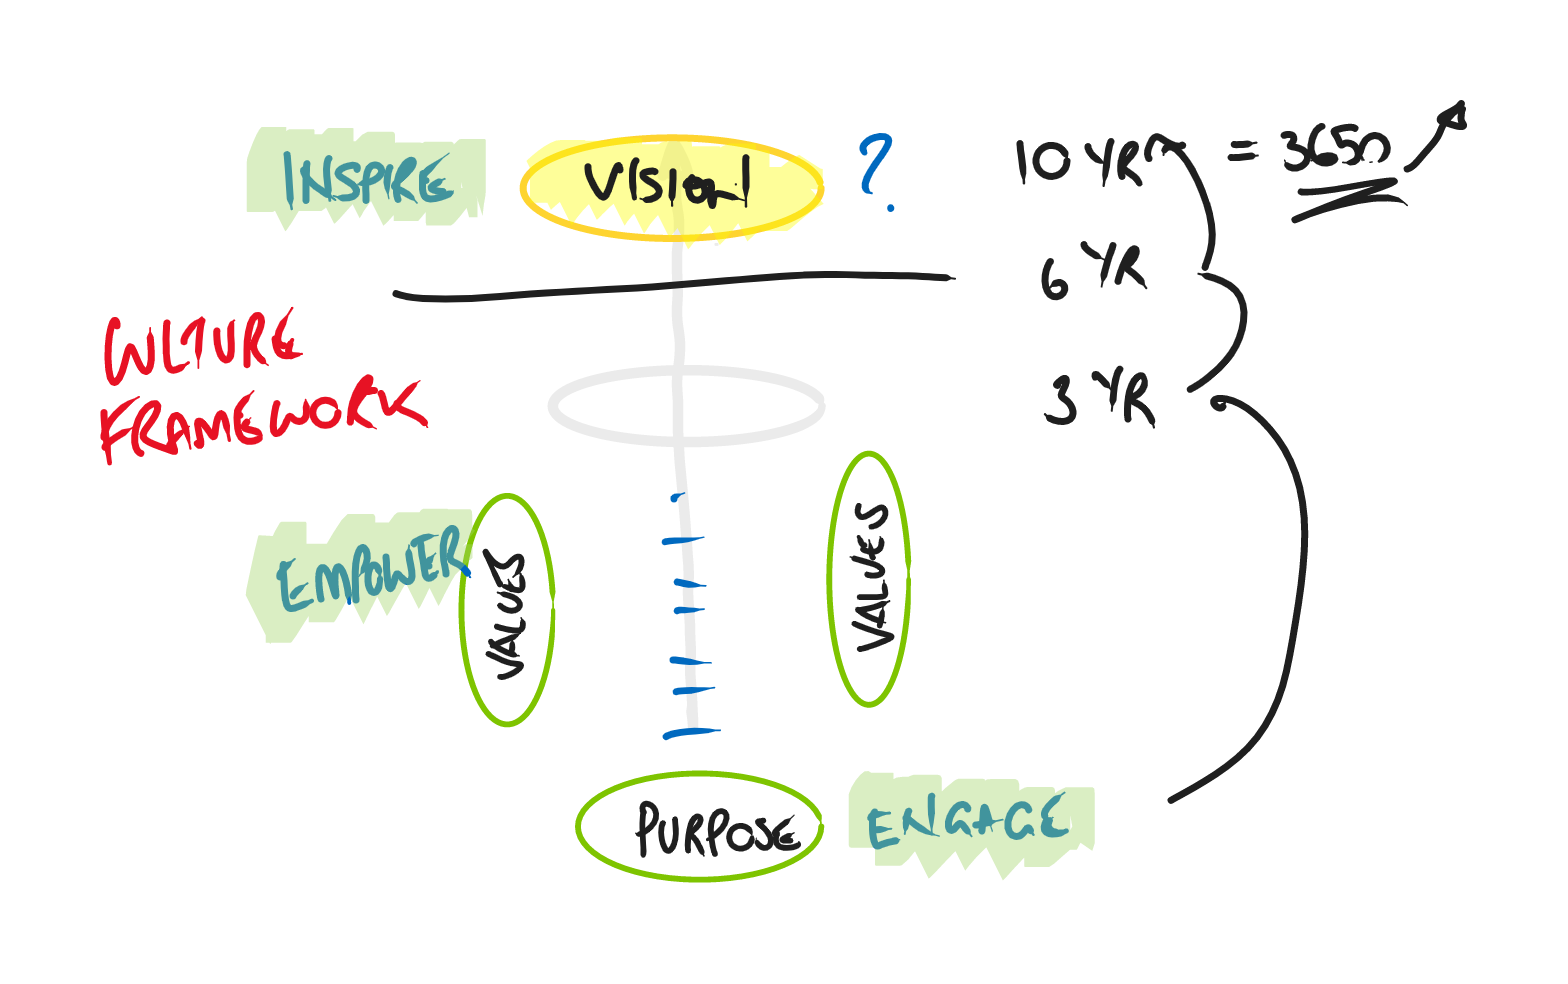 INSPIRE
VISION
?
10 YR
= 3650
6 YR
CULTURE
FRAMEWORK
3 YR
EMPOWER
VALUES
VALUES
PURPOSE
ENGAGE